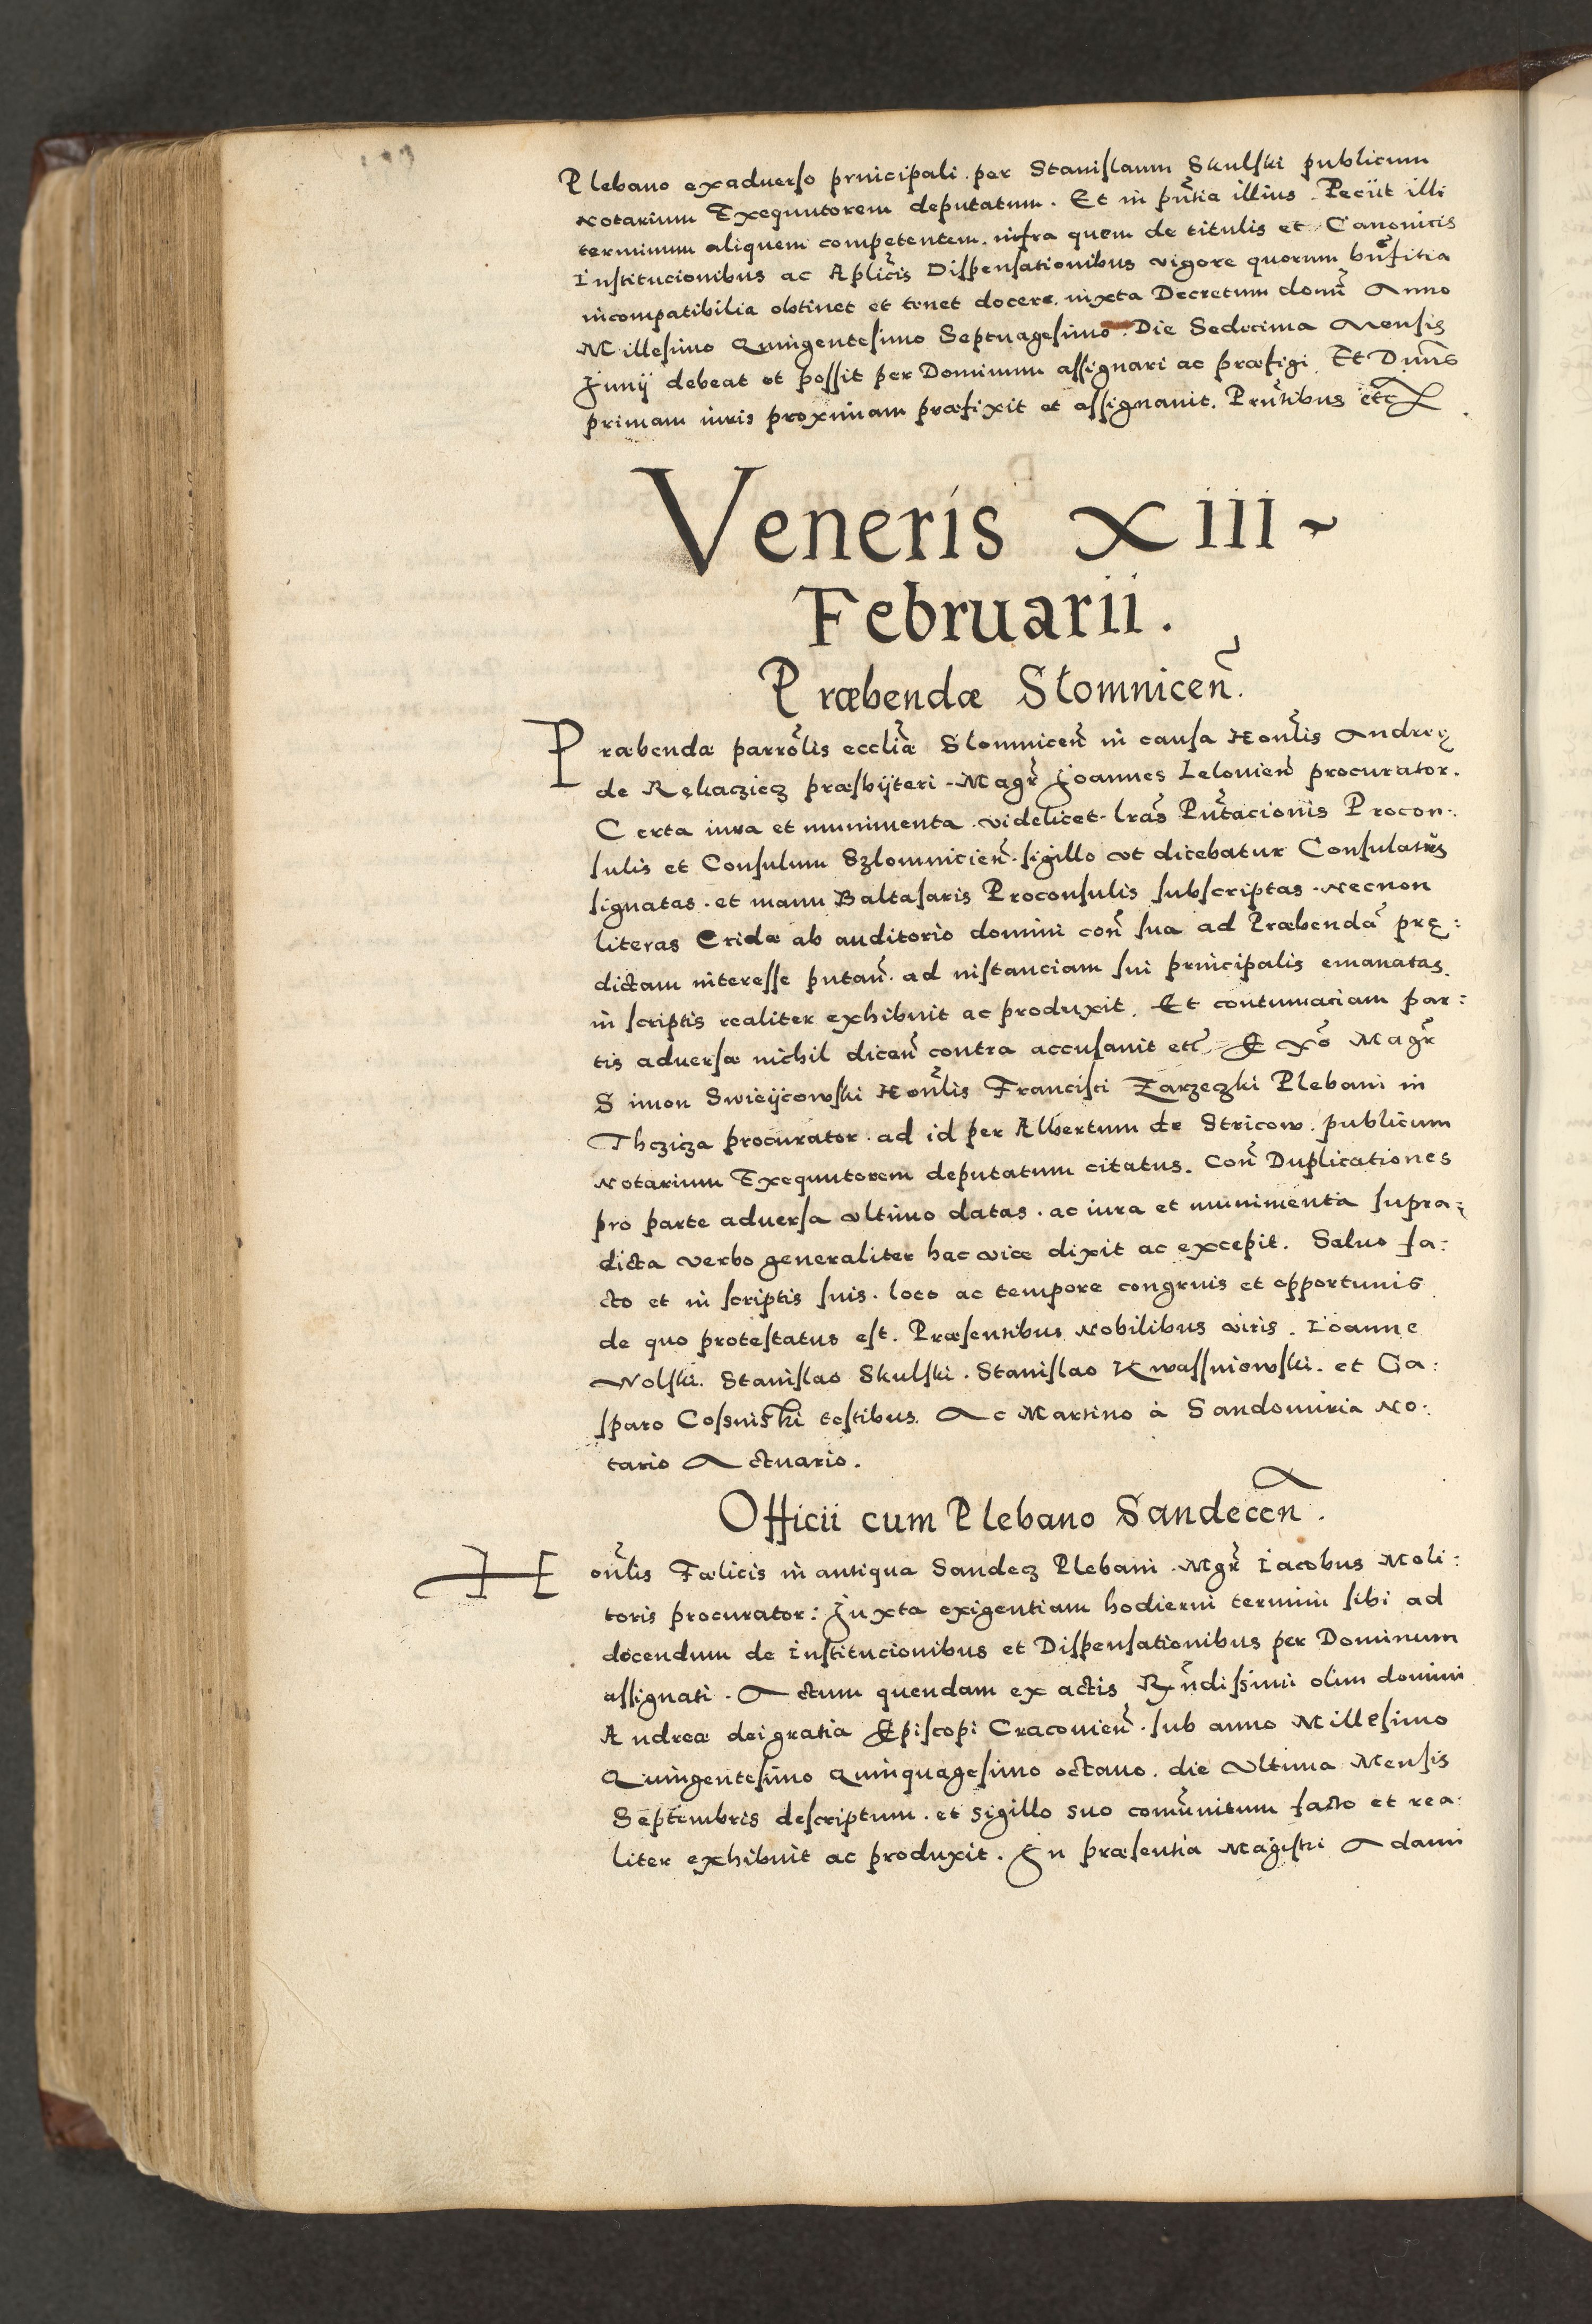 Plebano exaduerso principali . per Stanislaum Skulski publicum
Notarium Exequutorem deputatum . Et in pñtia illius . Peciit illi
terminum aliquem competentem . infra quem de titulis et Canonicis
Institucionibus ac Aplicis Dispensationibus vigore quorum bñficia
incompatibilia obtinet et tenet docere . iuxta Decretum domñ Anno
Millesimo Quingentesimo Septuagesimo . Die Sedecima Mensis
Junij debeat et possit per Dominum assignari ac præfigi . Et Dnus
primam iuris proximam præfixit et assignauit . Pñtibus etc
Veneris XIII
Februarii .
Præbendæ Slomnicen̄ .
Præbendæ parrolis eccliæ Slomnicen̄ in causa Honlis Andreę
de Rękaczicz præsbÿteri . Magr Joannes Lelouien̄ procurator .
Certa iura et munimenta . videlicet . lras Pñtacionis Procon:
sulis et Consulum Szlomnicien̄ . sigillo vt dicebatur Consulatus
signatas . et manu Baltasaris Proconsulis subscriptas . necnon
literas Cridæ ab auditorio domini con̄ sua ad Præbendā prę:
dictam interesse putan̄ . ad instanciam sui principalis emanatas .
in scriptis realiter exhibuit ac produxit . Et contumaciam par:
tis aduersæ nichil dicen̄ contra accusauit etc Ex̄o Magr
Simon Swieÿcowski Honlis Francisci Zarzeczki Plebani in
Thcziza procurator . ad id per Albertum de Stricow . publicum
Notarium Exequutorem deputatum citatus . Con̄ Duplicationes
pro parte aduersa vltimo datas . ac iura et munimenta supra:
dicta verbo generaliter hac vice dixit ac excepit . Saluo fa:
cto et in scriptis suis . loco ac tempore congruis et opportunis
de quo protestatus est . Præsentibus Nobilibus viris . Ioanne
Wolski . Stanislao Skulski . Stanislao Kwassniowski . et Ga:
sparo Cosniski testibus . Ac Martino à Sandomiria No:
tario Actuario .
Officii cum Plebano Sandecen̄ .
Honlis Fælicis in antiqua Sandecz Plebani . Mgr Iacobus Moli:
toris procurator : Juxta exigentiam hodierni termini sibi ad
docendum de institucionibus et Dispensationibus per Dominum
assignati . Actum quendam ex actis Rñdissimi olim domini
Andreæ dei gratia Episcopi Cracouien̄ . sub anno Millesimo
Quingentesimo Quinquagesimo octauo . die Vltima Mensis
Septembris descriptum . et sigillo suo comūnitum facto et rea:
liter exhibuit ac produxit . In præsentia Magistri Adami